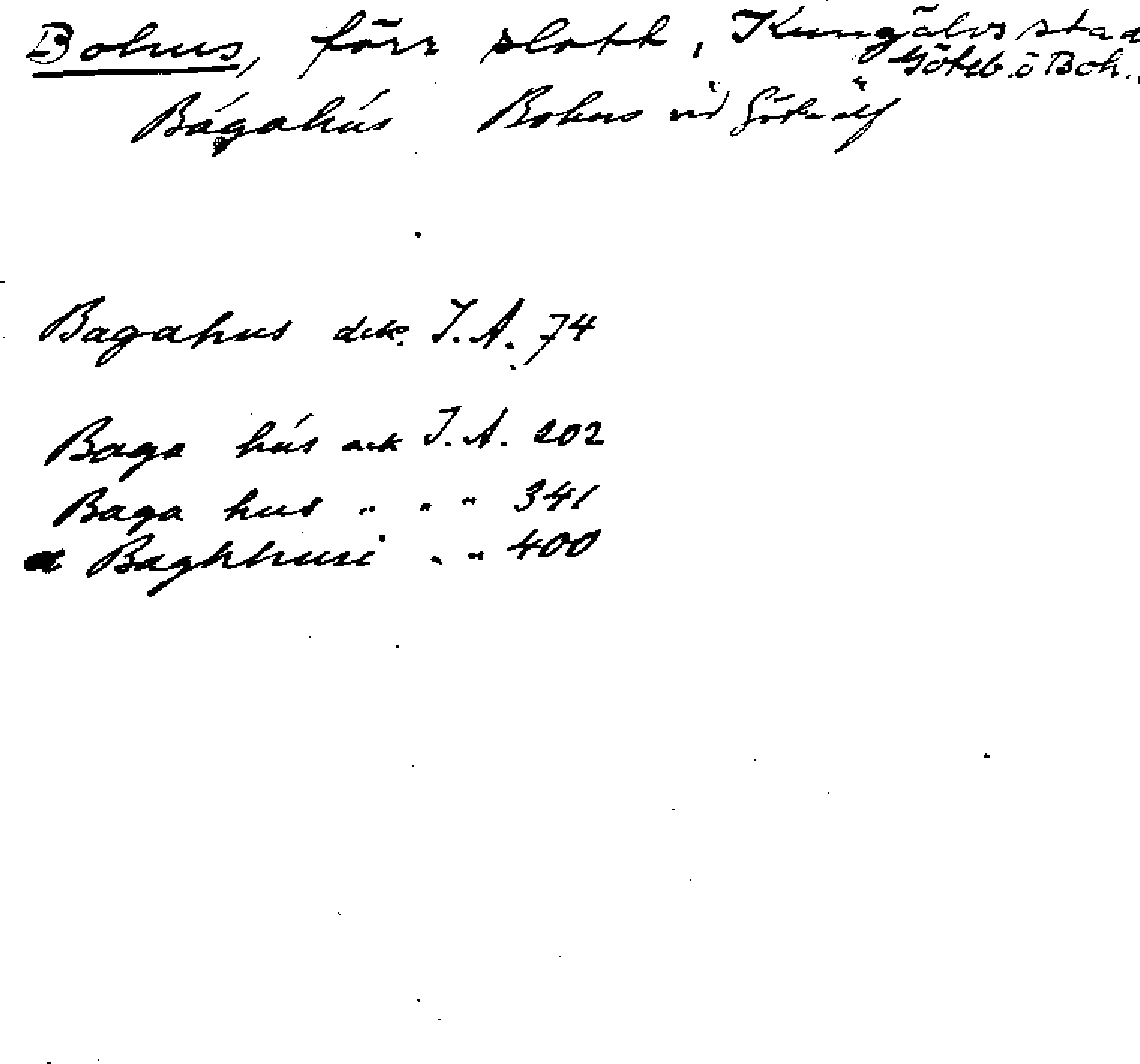 Bohus, förr slott, Kungälvs stad
Göteb. o Boh.
Bágahús Bohus vid Göta älf
Bagahus ack. I.A. 74
Baga hús ack I.A. 202
Baga hus " " " 341
Baghhusi " " 400